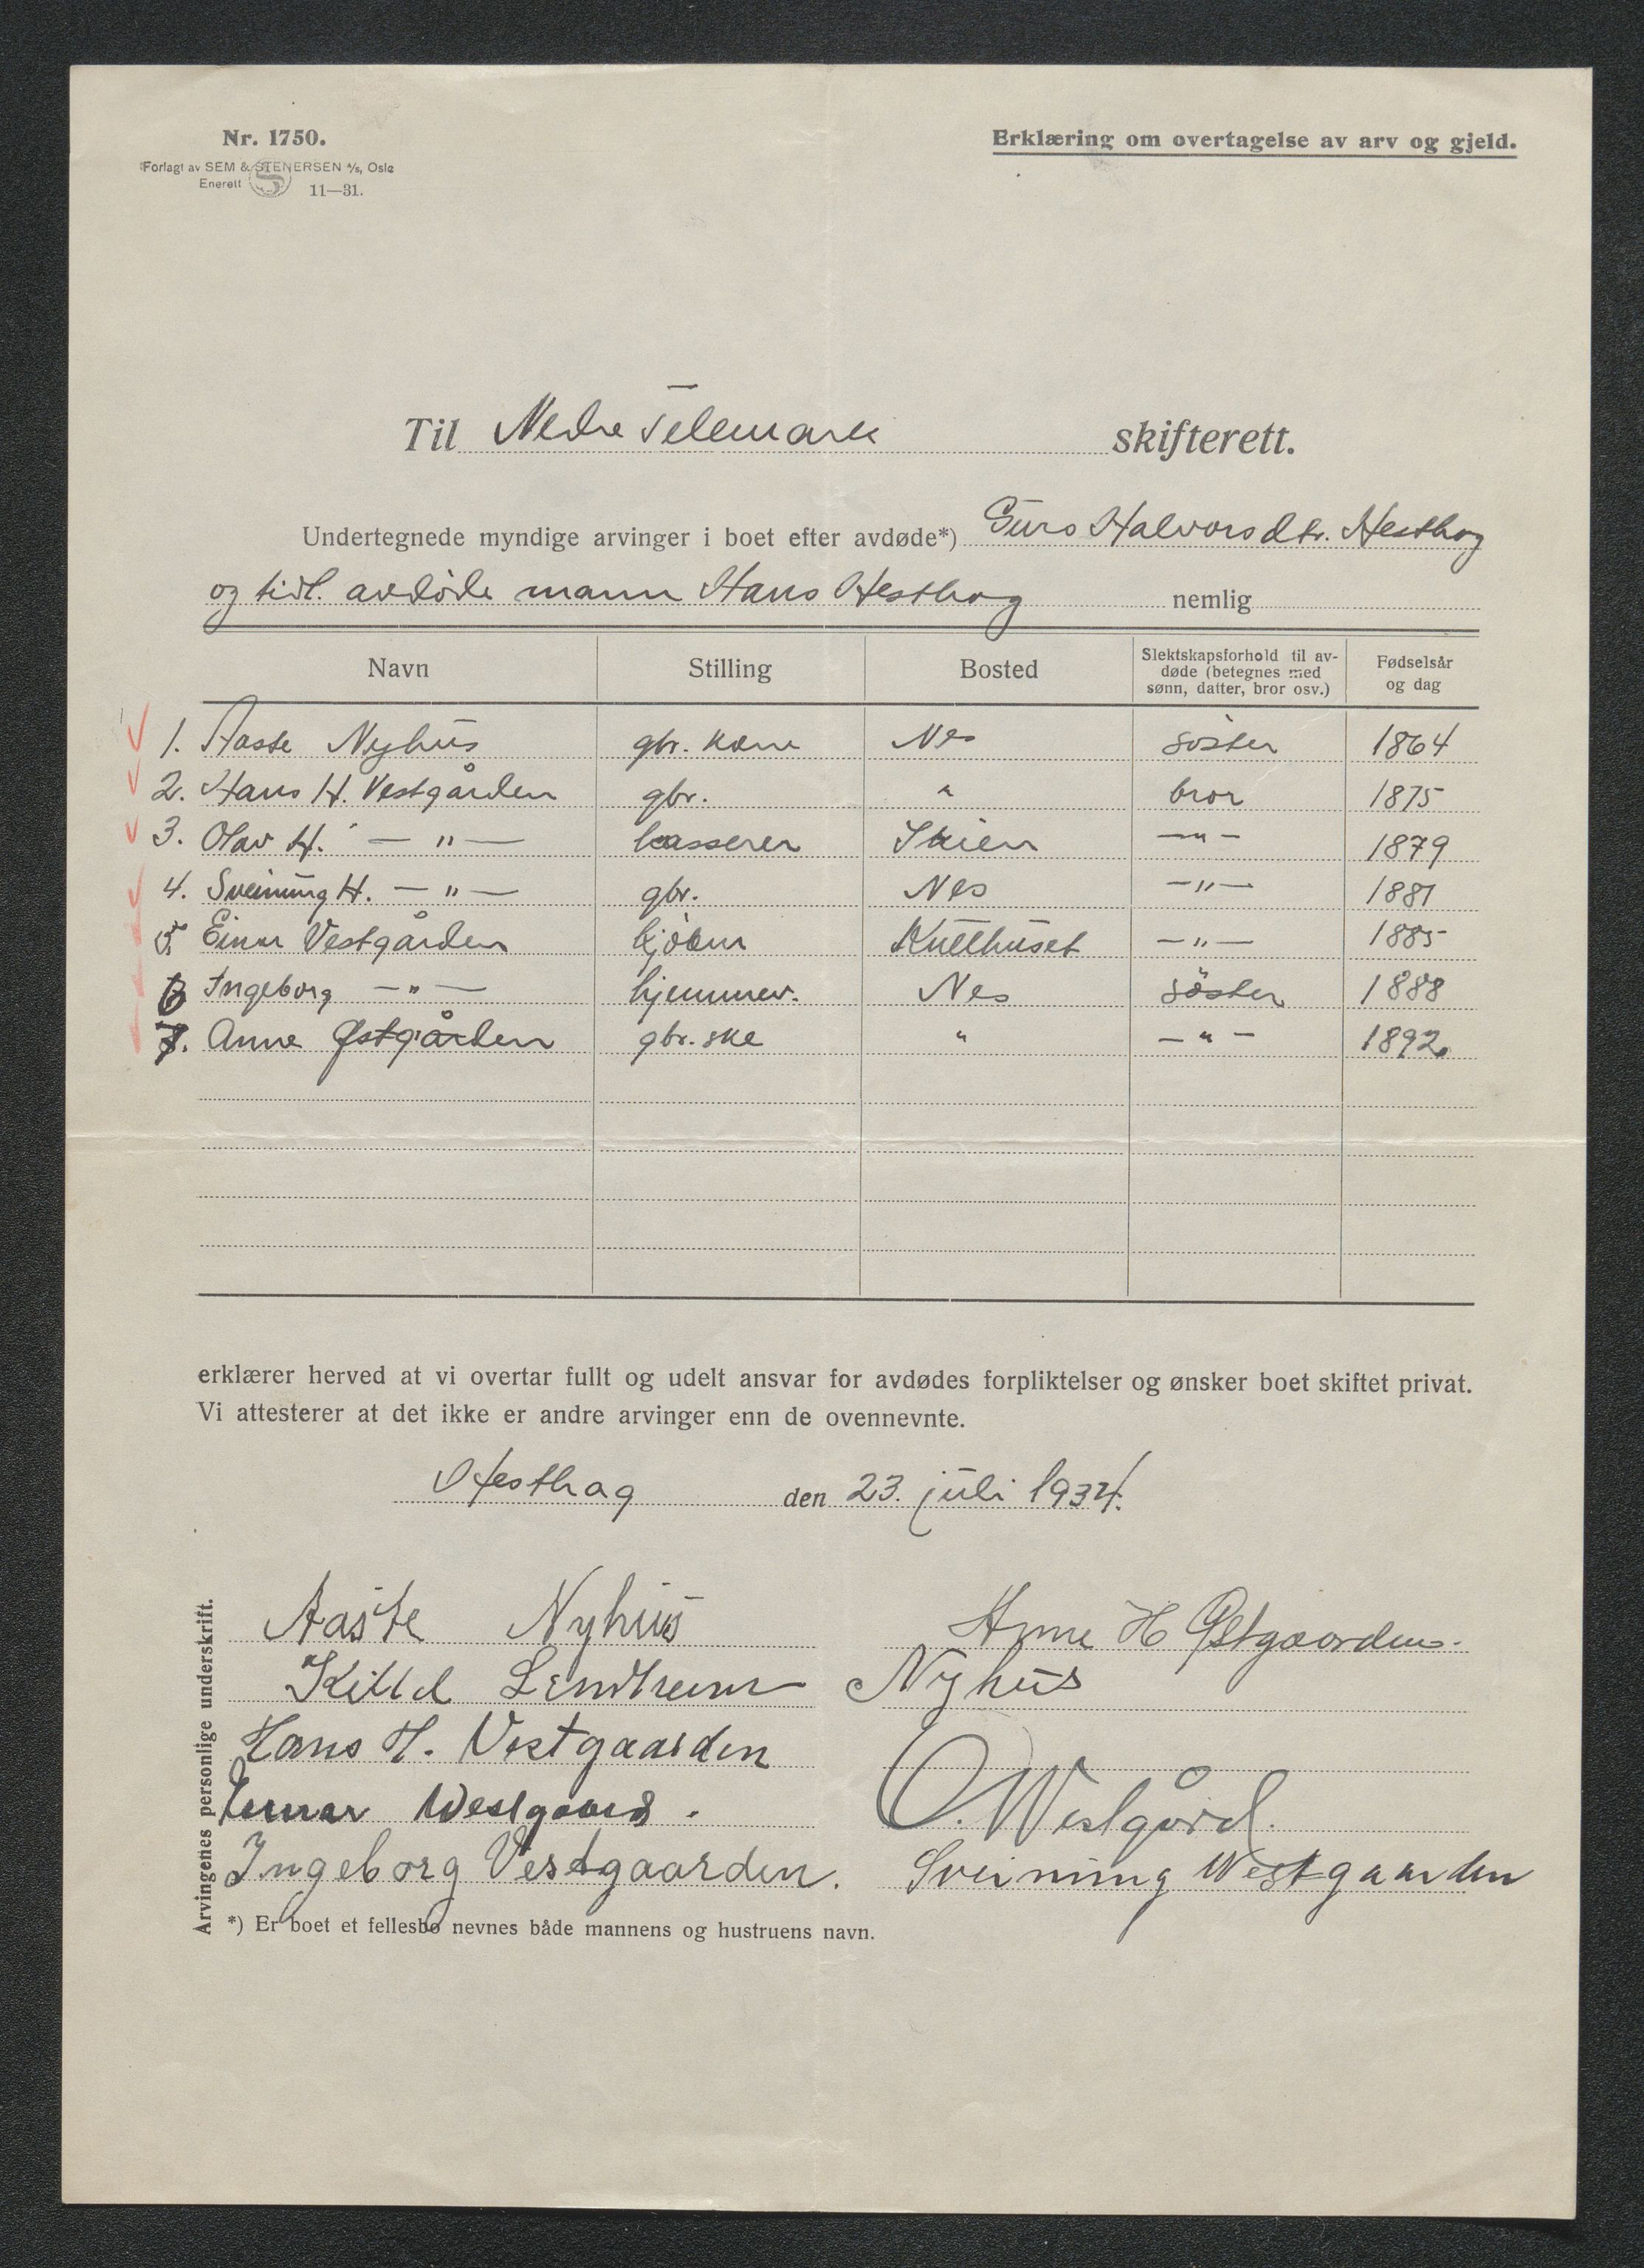 Nr. 1750.
Erklæring om overtagelse av arv og gjeld.
Forlagt av SEM & STENERSEN A/s, Oslo
Enerett S 11—31.
Til Nedre Telemark skifterett.
Undertegnede myndige arvinger i boet efter avdøde*) Guro Halvorsdtr. Hesthag
og tidl. avdöde mann Hans Hesthag nemlig
Navn Stilling Bosted Slektskapsforhold til avdøde (betegnes med sønn, datter, bror osv.) Fødselsår og dag
1. Aaste Nyhus gbr. kone Nes söster 1864
2. Hans H. Vestgården gbr. " bror 1875
3. Olav H. — " — kasserer Skien — " — 1879
4. Sveinung H. — " — gbr. Nes — " — 1881
5. Einar Vestgården kjöbm Kulthuset — " — 1885
6 Ingeborg — " — hjemmev. Nes söster 1888
7. Anne Østgården gbr. ske " — " — 1892.
erklærer herved at vi overtar fullt og udelt ansvar for avdødes forpliktelser og ønsker boet skiftet privat.
Vi attesterer at det ikke er andre arvinger enn de ovennevnte.
Hesthag den 23. juli 1934.
Arvingenes personlige underskrift.
Aaste Nyhus Anne H Østgaarden.
Nyhus
Hans H. Vestgaarden
Einar Westgaard. O. Westgård.
Ingeborg Vestgaarden. Sveinung Westgaarden
*) Er boet et fellesbo nevnes både mannens og hustruens navn.